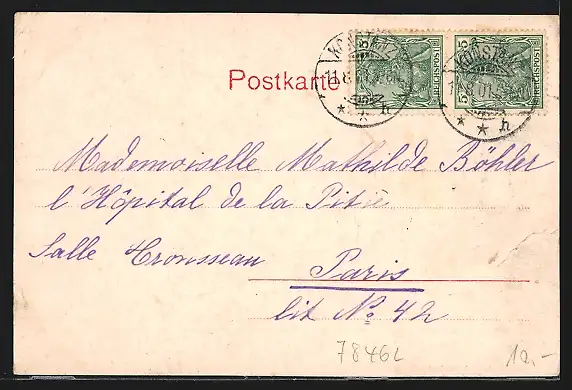 Postkarte
KONSTANZ
11.8.01.
h
KONSTANZ
11.8.01.
h
5
REICHSPOST
5
5
REICHSPOST
Mademoiselle Mathilde Böhler
l'Hôpital de la Pitié
Salle Trousseau Paris
lit No. 42
78462
10,-